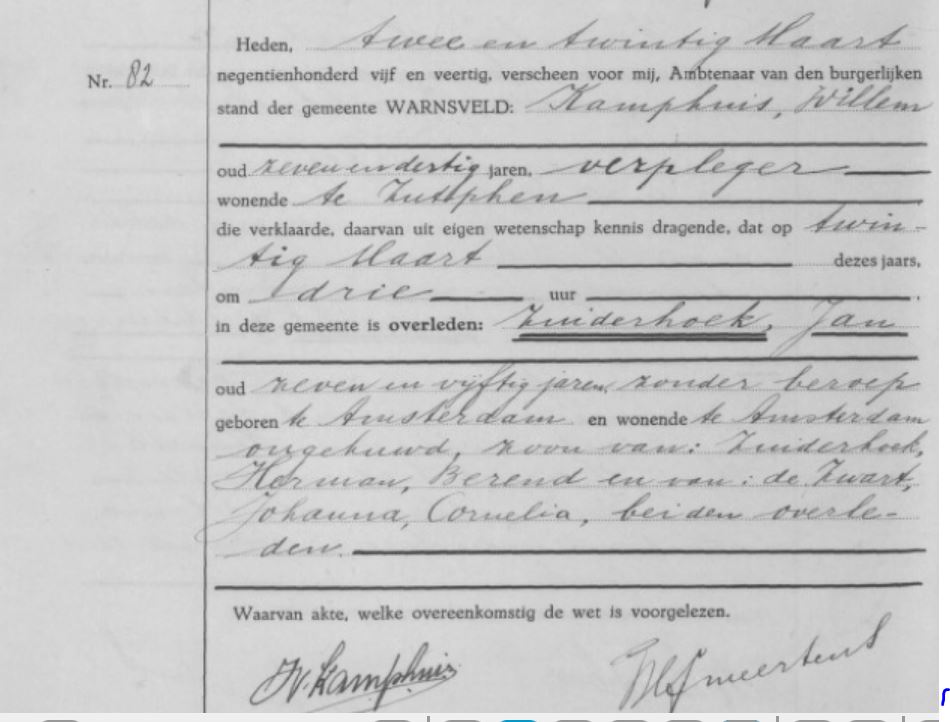 Heden, twee en twintig Maart
Nr. 82
negentienhonderd vijf en veertig, verscheen voor mij, Ambtenaar van den burgerlijken
stand der gemeente WARNSVELD: Kamphuis, Willem
oud zevenendertig jaren, verpleger
wonende te Zutphen
die verklaarde, daarvan uit eigen wetenschap kennis dragende, dat op twin-
tig Maart dezes jaars,
om drie uur
in deze gemeente is overleden: Zuiderhoek, Jan
oud zeven en vijftig jaren, zonder beroep
geboren te Amsterdam en wonende te Amsterdam
ongehuwd, zoon van: Zuiderhoek,
Herman, Berend en van: de Zwart,
Johanna, Cornelia, beiden overle-
den.
Waarvan akte, welke overeenkomstig de wet is voorgelezen.
W. Kamphuis